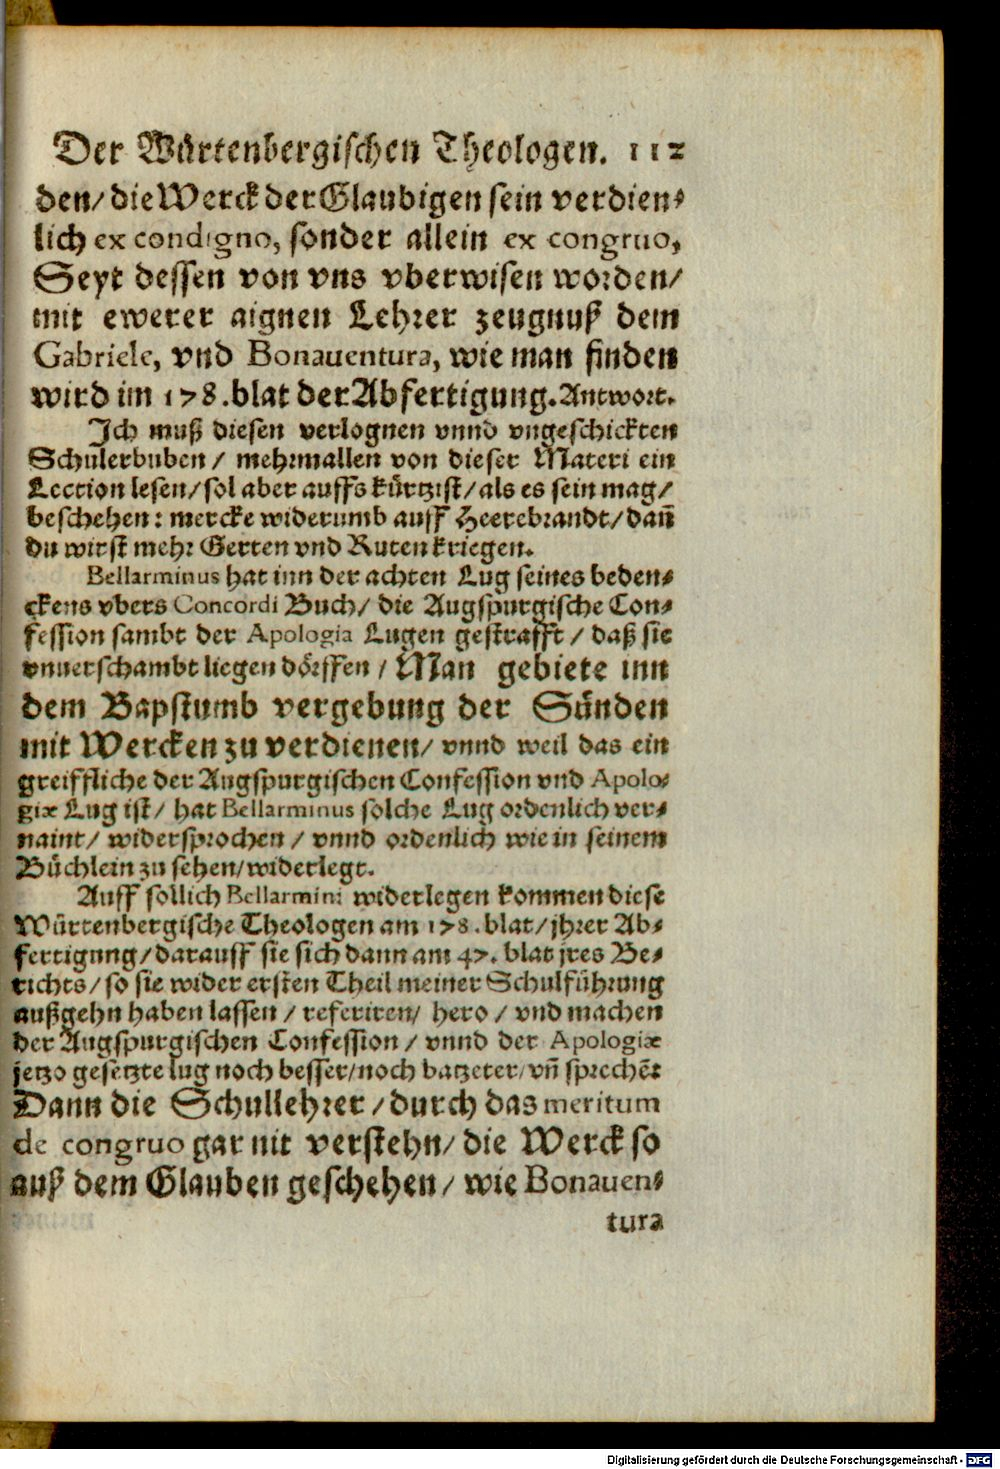 Der Würtenbergischen Theologen. 112
den/ die Werck der Glaubigen sein verdien⸗
lich ex condigno, sonder allein ex congruo,
Seyt dessen von vns vberwisen worden/
mit ewerer aignen Lehrer zeugnuß dem
Gabriele, vnd Bonauentura, wie man finden
wird im 178. blat der Abfertigung. Antwort.
Ich muß diesen verlognen vnnd vngeschickten
Schulerbuben/ mehrmallen von dieser Materi ein
Lection lesen/ sol aber auffs kürtzist/ als es sein mag/
beschehen: mercke widerumb auff Heerebrandt/ dañ
du wirst mehr Gerten vnd Ruten kriegen.
Bellarminus hat inn der achten Lug seines beden⸗
ckens vbers Concordi Buch/ die Augspurgische Con⸗
fession sambt der Apologia Lugen gestrafft/ daß sie
vnuerschambt liegen dörffen/ Man gebiete inn
dem Bapstumb vergebung der Sünden
mit Wercken zu verdienen/ vnnd weil das ein
greiffliche der Augspurgischen Confession vnd Apolo⸗
giæ Lug ist/ hat Bellarminus solche Lug ordenlich ver⸗
naint/ widersprochen/ vnnd ordenlich wie in seinem
Büchlein zu sehen/ widerlegt.
Auff sollich Bellarmini widerlegen kommen diese
Würtenbergische Theologen am 178. blat/ jhrer Ab⸗
fertigung/ darauff sie sich dann am 47. blat jres Be⸗
richts/ so sie wider ersten Theil meiner Schulführung
außgehn haben lassen/ referiren/ hero/ vnd machen
der Augspurgischen Confession/ vnnd der Apologiæ
jetzo gesetzte lug noch besser/ noch batzeter/ vñ sprechẽ:
Dann die Schullehrer/ durch das meritum
de congruo gar nit verstehn/ die Werck so
auß dem Glauben geschehen/ wie Bonauen⸗
tura
Digitalisierung gefördert durch die Deutsche Forschungsgemeinschaft - DFG